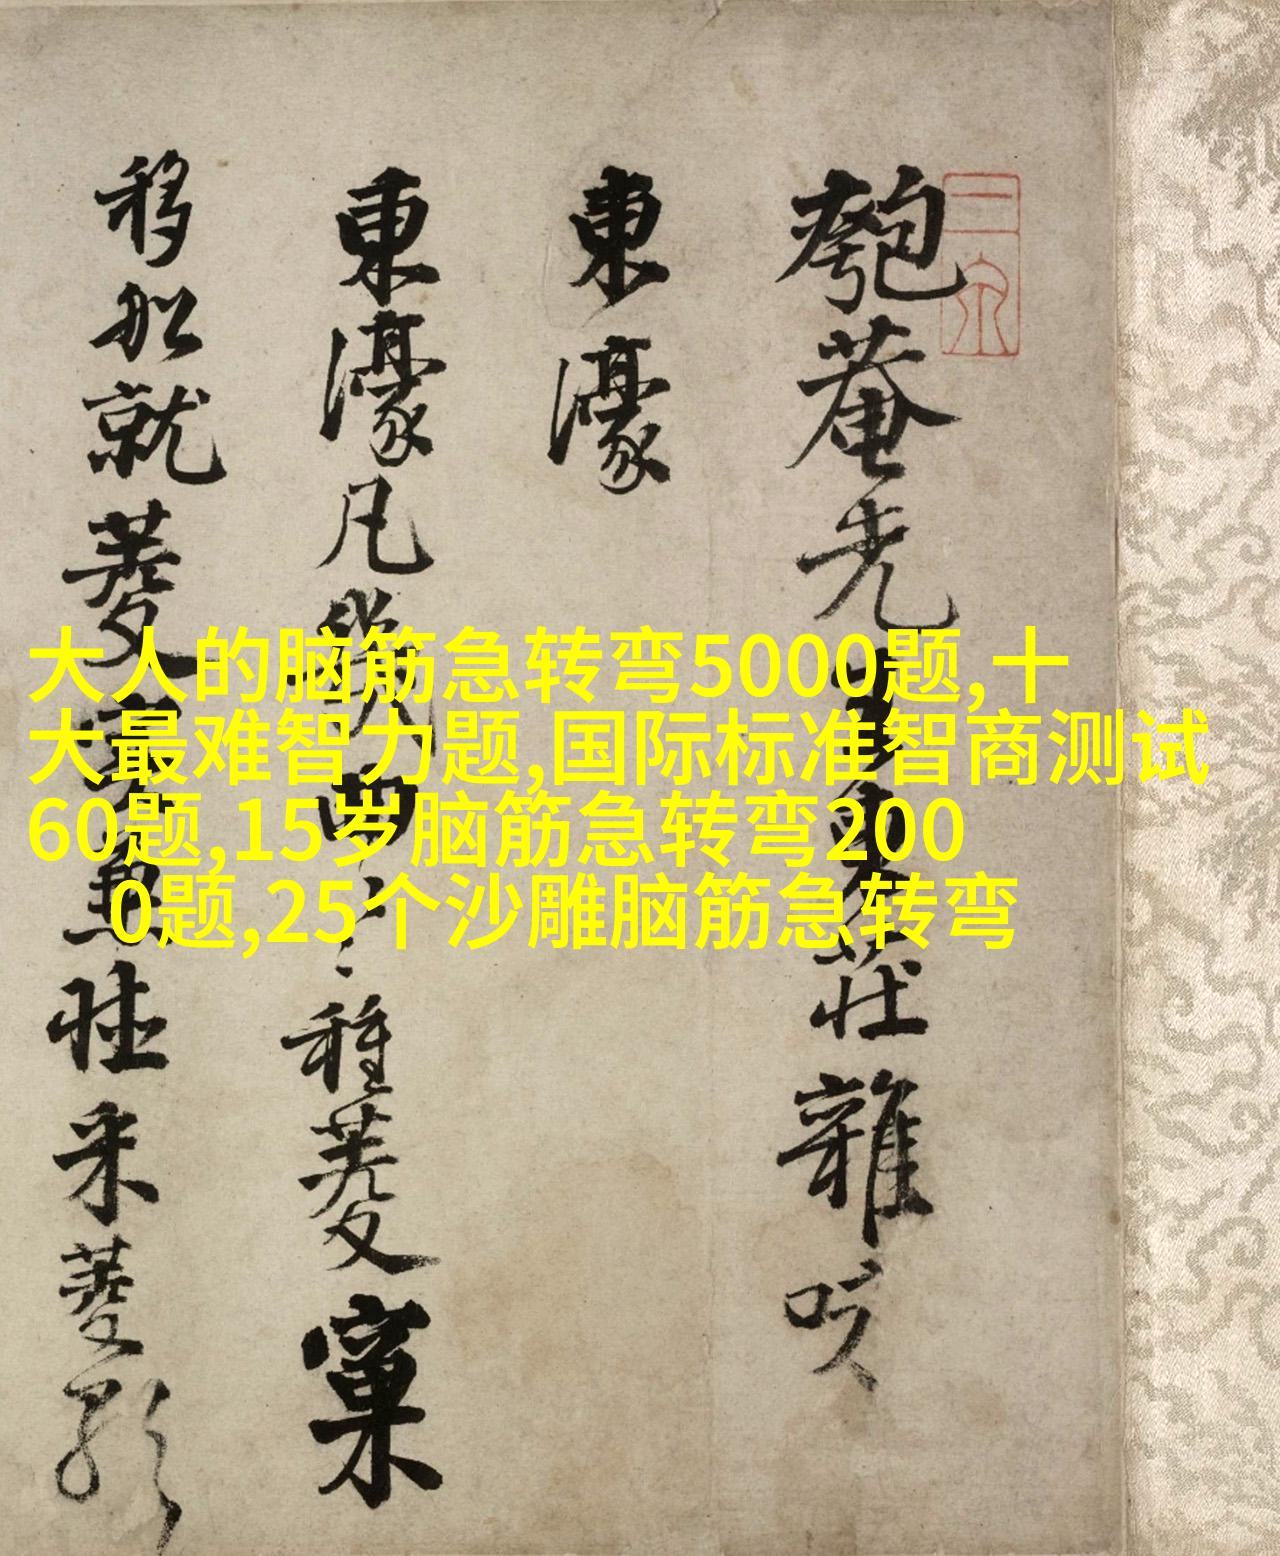 匏菴先生東莊雜咏
東濠
東濠凡幾曲〻〻種菱窠
移船就菱采菱
大人的脑筋急转弯5000题,十
大最难智力题,国际标准智商测试
60题,15岁脑筋急转弯200
0题,25个沙雕脑筋急转弯